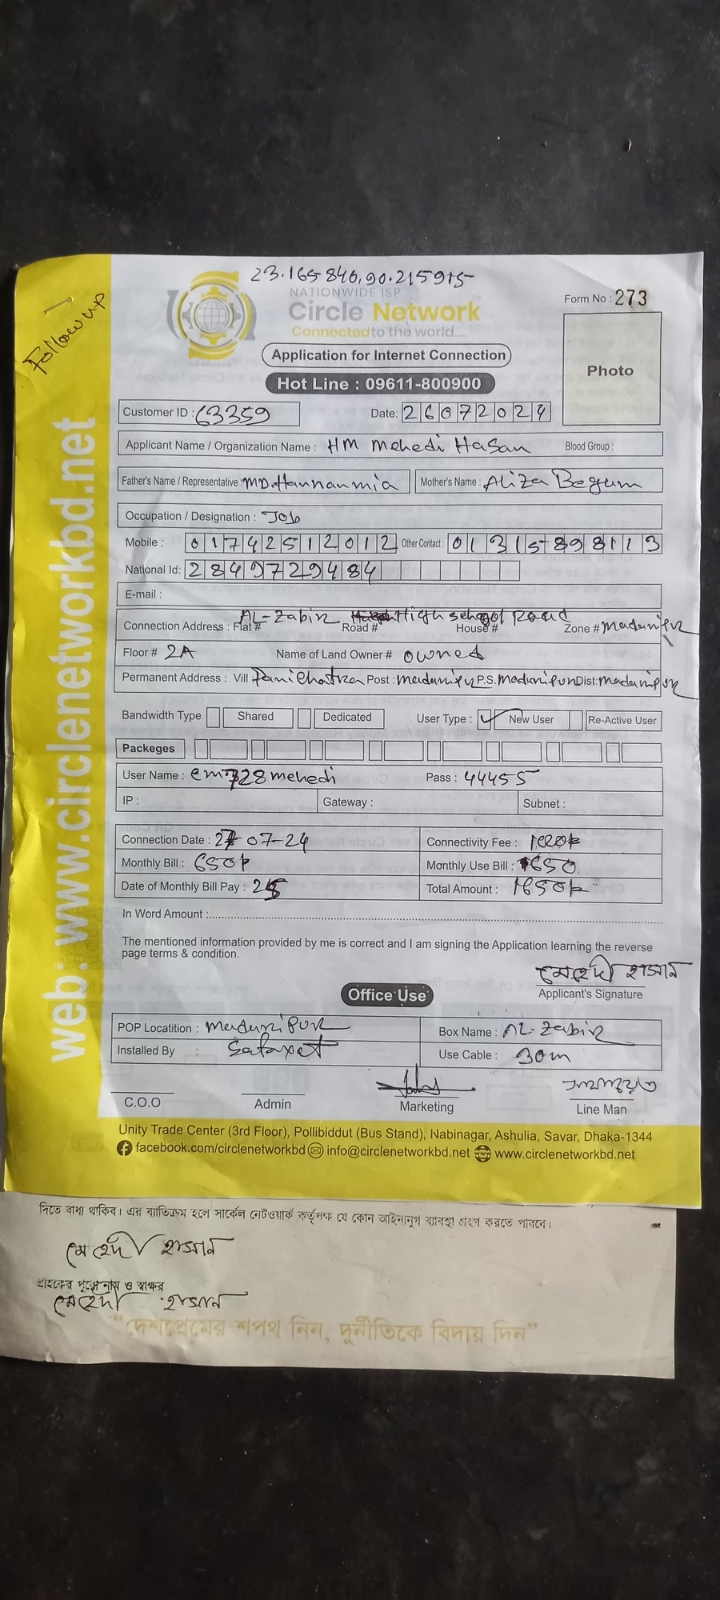 23.165840,90.215915
NATIONWIDE ISP
Circle Network
Connected to the world....
Form No : 273
Follow up
Application for Internet Connection
Photo
Hot Line : 09611-800900
Customer ID : 63359
Date: 26072024
Applicant Name / Organization Name : HM Mehedi Hasan Blood Group :
Father's Name / Representative MD. Hannan mia Mother's Name : Aliza Begum
Occupation / Designation : Job
Mobile : 01742512012 Other Contact 01315898113
National Id: 2849729484
E-mail :
Connection Address : Flat # AL-Zabir Road # High school Road House # Zone # madaripur
Floor # 2A Name of Land Owner # owned
Permanent Address : Vill Panichatra Post : madaripur P.S. Madaripur Dist: madaripur
Bandwidth Type Shared Dedicated User Type : ✓ New User Re-Active User
Packeges
User Name : cm728mehedi Pass : 44455
IP : Gateway : Subnet :
Connection Date : 27 07-24 Connectivity Fee :
Monthly Bill : 650৳ Monthly Use Bill : 1650
Date of Monthly Bill Pay : Total Amount : 1650৳
In Word Amount :
The mentioned information provided by me is correct and I am signing the Application learning the reverse
page terms & condition.
মেহেদী হাসান
Applicant's Signature
Office Use
POP Locatition : Madaripur Box Name : AL-Zabir
Installed By : Safayet Use Cable : 30m
C.O.O Admin Marketing Line Man
Unity Trade Center (3rd Floor), Pollibiddut (Bus Stand), Nabinagar, Ashulia, Savar, Dhaka-1344
facebook.com/circlenetworkbd info@circlenetworkbd.net www.circlenetworkbd.net
web: www.circlenetworkbd.net
দিতে বাধ্য থাকিব। এর ব্যাতিক্রম হলে সার্কেল নেটওয়ার্ক কর্তৃপক্ষ যে কোন আইনানুগ ব্যাবস্থা গ্রহণ করতে পারবে।
মেহেদী হাসান
গ্রাহকের পূর্ণ নাম ও স্বাক্ষর
মেহেদী হাসান
"দেশপ্রেমের শপথ নিন, দুর্নীতিকে বিদায় দিন"